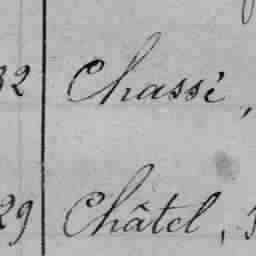 32 Chassé,
29 Châtel,